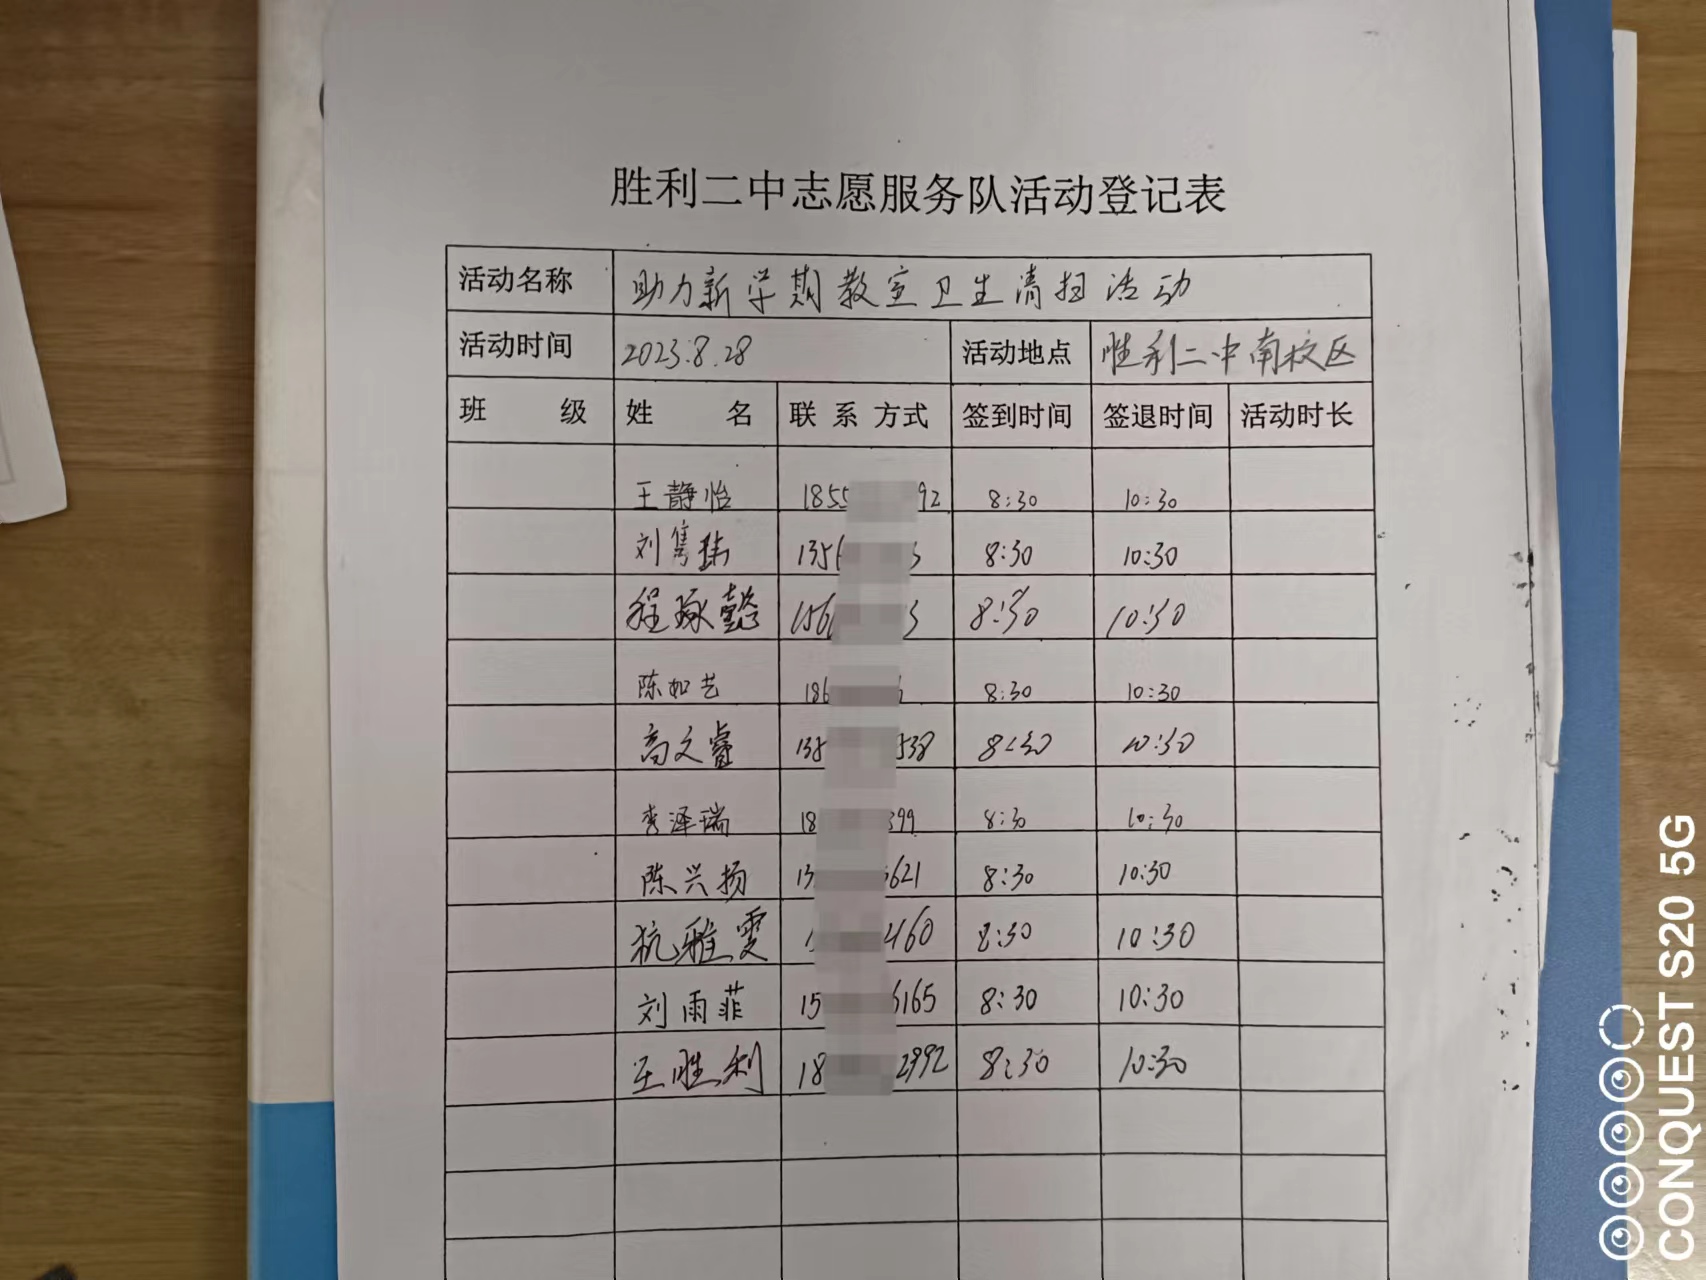 胜利二中志愿服务队活动登记表
活动名称 助力新学期教室卫生清扫活动
活动时间 2023.8.28 活动地点 胜利二中南校区
班 级 姓 名 联 系 方式 签到时间 签退时间 活动时长
王静怡 1855 92 8:30 10:30
刘隽玮 156 3 8:30 10:30
程琢懿 156 3 8:30 10:30
陈如艺 186 8:30 10:30
高文睿 135 538 8:30 10:30
李泽瑞 18 399 8:30 10:30
陈兴扬 13 621 8:30 10:30
杭雅雯 1 460 8:30 10:30
刘雨菲 15 6165 8:30 10:30
王胜利 18 2992 8:30 10:30
CONQUEST S20 5G